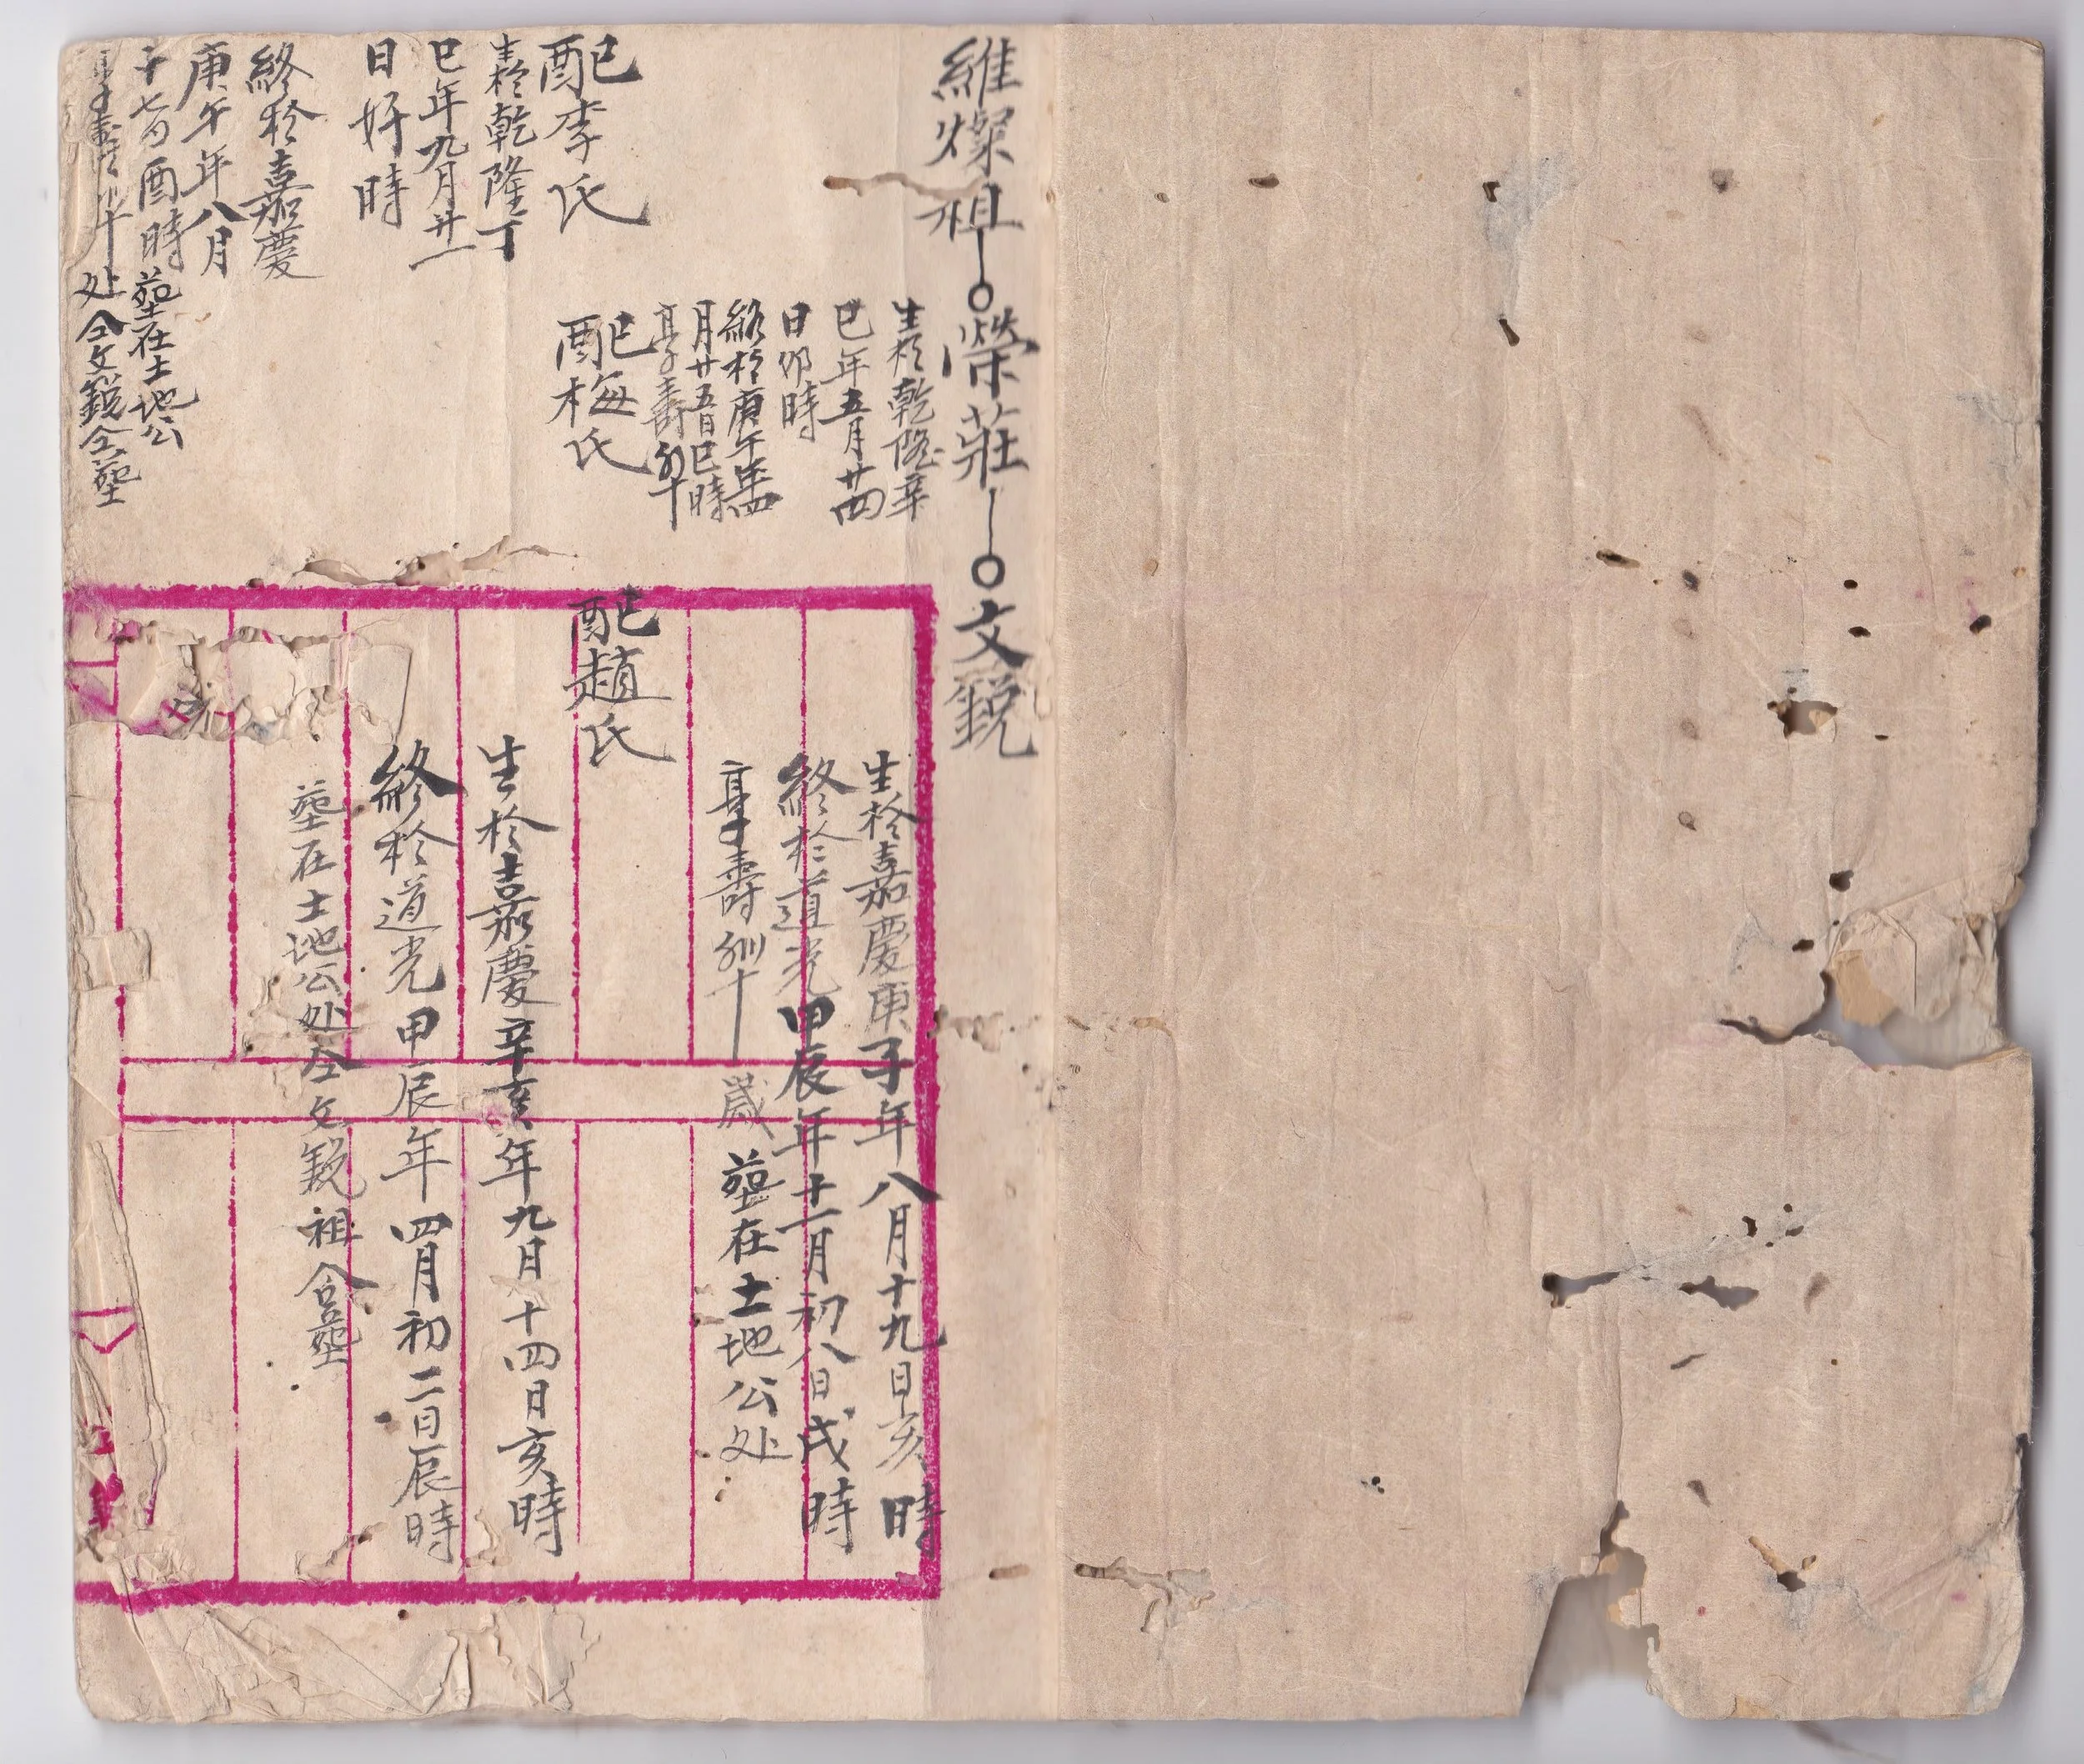 維燦祖—○榮莊—○文銳
生於乾隆辛
巳年五月廿四
日卯時
終於庚午年四
月廿五日巳時
享壽
配李氏
生於乾隆丁
巳年九月廿一
日好時
終於嘉慶
庚午年八月
十七日酉時塟在土地公
享壽 处仝文銳仝塟
配梅氏
生於嘉慶庚子年八月十九日亥時
終於道光甲辰年十一月初八日戌時
享壽 歲塟在土地公处
配趙氏
生於嘉慶辛亥年九月十四日亥時
終於道光甲辰年四月初二日辰時
塟在土地公处仝文銳祖合塟